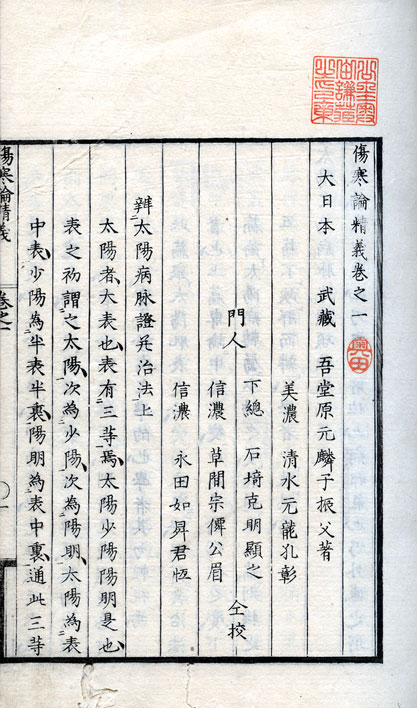 傷寒論精義卷之一
大日本 武藏 吾堂原元麟子振父著
美濃 清水元龍孔彰
門人 下總 石埼克明顯之 仝挍
信濃 草間宗儞公眉
信濃 永田如昇君恆
辨太陽病脉證并治法上
太陽者、大表也、表有三等焉、太陽少陽陽明是也、
表之初謂之太陽、次為少陽、次為陽明、太陽為表
中表、少陽為半表半裏、陽明為表中裏、通此三等
傷寒論精義
卷之一